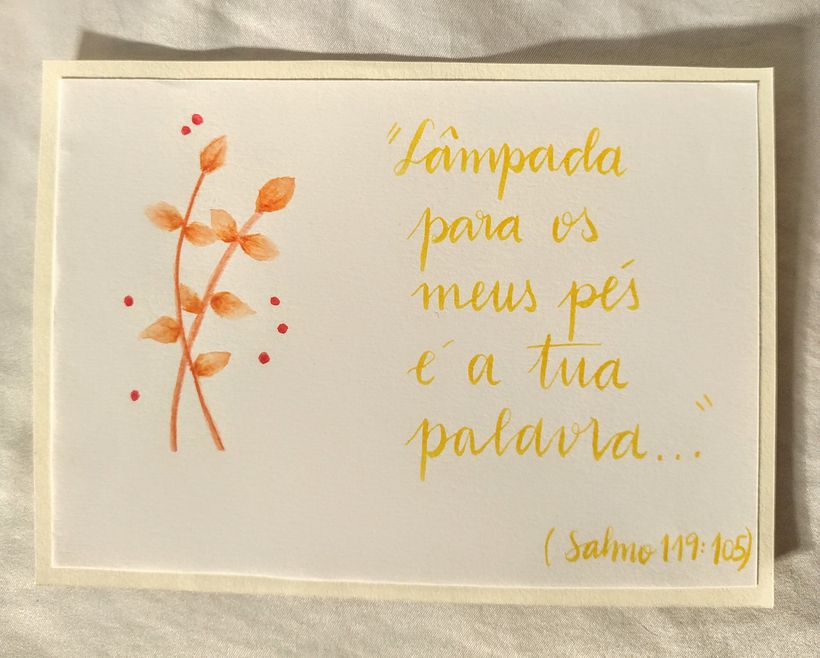 "Lâmpada
para os
meus pés
é a tua
palavra..."
(Salmo 119:105)